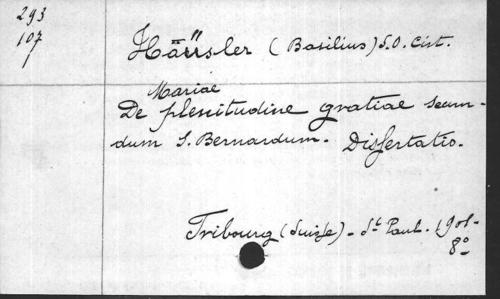 293
107
1
Häusler (Basilius) S. O. Cist.
Mariae
De plenitudine gratiae secun-
dum S. Bernardum. Dissertatio.
Fribourg (Suisse) - St Paul. 1901-
8º